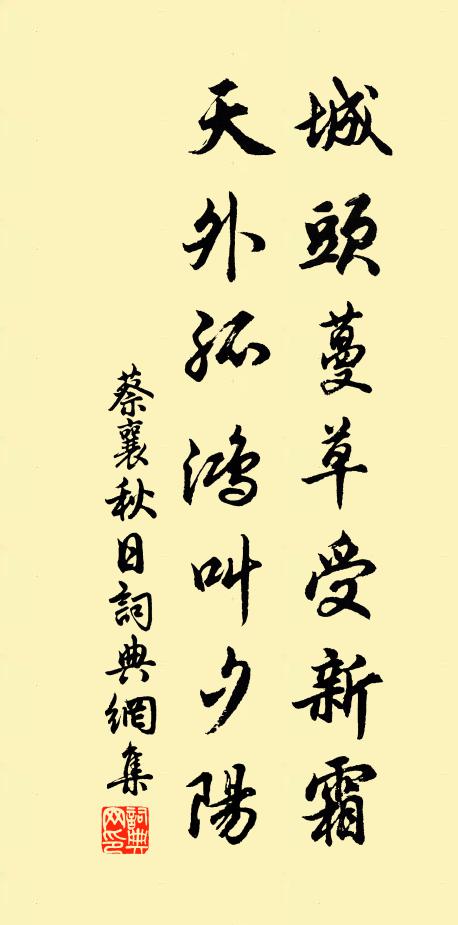 城頭蔓草受新霜
天外孤鴻叫夕陽
蔡襄秋日詞典網集
詞典网印